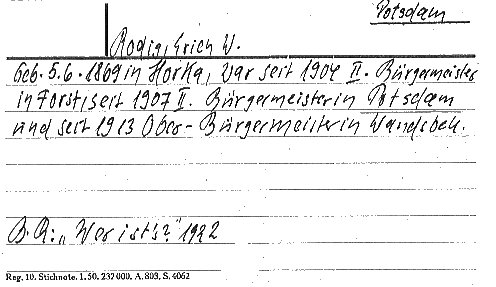 Potsdam
Rodig, Erich W.
Geb. 5.6.1869 in Horka, war seit 1904 II. Bürgermeister
in Forst; seit 1907 II. Bürgermeister in Potsdam
und seit 1913 Ober-Bürgermeister in Wandsbek.
B.R.: „Wer ist's?" 1922
Reg. 10. Stichnote. 1. 50. 232 000. A. 803. S. 4062